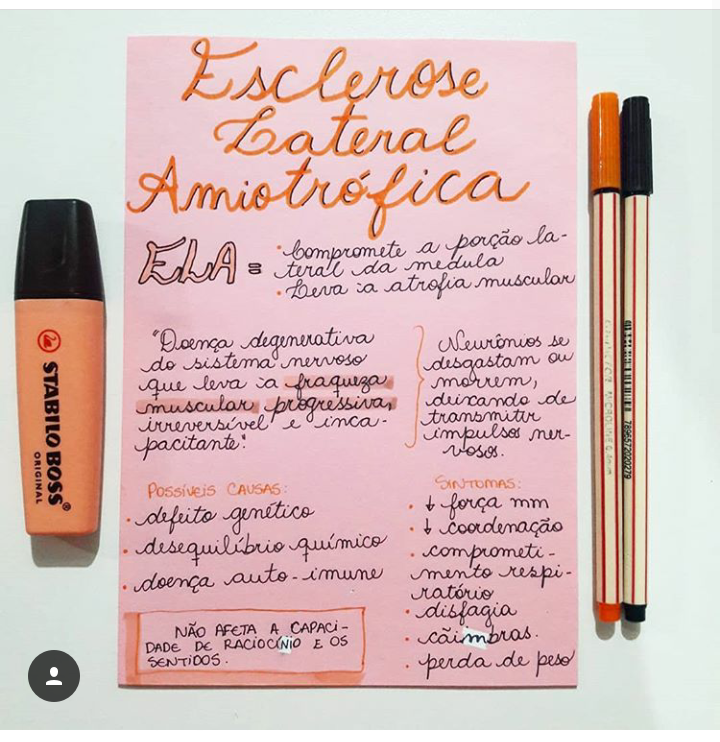 Esclerose
Lateral
Amiotrófica
ELA =
• Compromete a porção la-
teral da medula
• Leva a atrofia muscular
"Doença degenerativa
do sistema nervoso
que leva a fraqueza
muscular progressiva,
irreversível e inca-
pacitante".
Neurônios se
desgastam ou
morrem,
deixando de
transmitir
impulsos ner-
vosos.
POSSÍVEIS CAUSAS:
• defeito genético
• desequilíbrio químico
• doença auto-imune
NÃO AFETA A CAPACI-
DADE DE RACIOCÍNIO E OS
SENTIDOS.
SINTOMAS:
• ↓ força mm
• ↓ coordenação
• comprometi-
mento respi-
ratório
• disfagia
• cãimbras.
• perda de peso
STABILO BOSS®
ORIGINAL